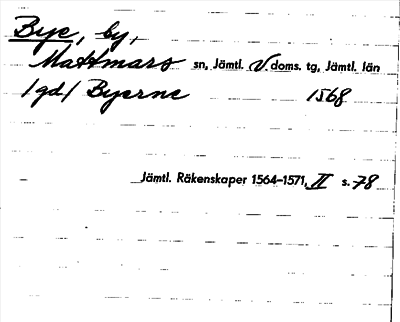 Bye, by,
Mattmars sn, Jämtl. V. doms. tg, Jämtl. län
/gd/ Byerne 1568
Jämtl. Räkenskaper 1564-1571, II s. 78